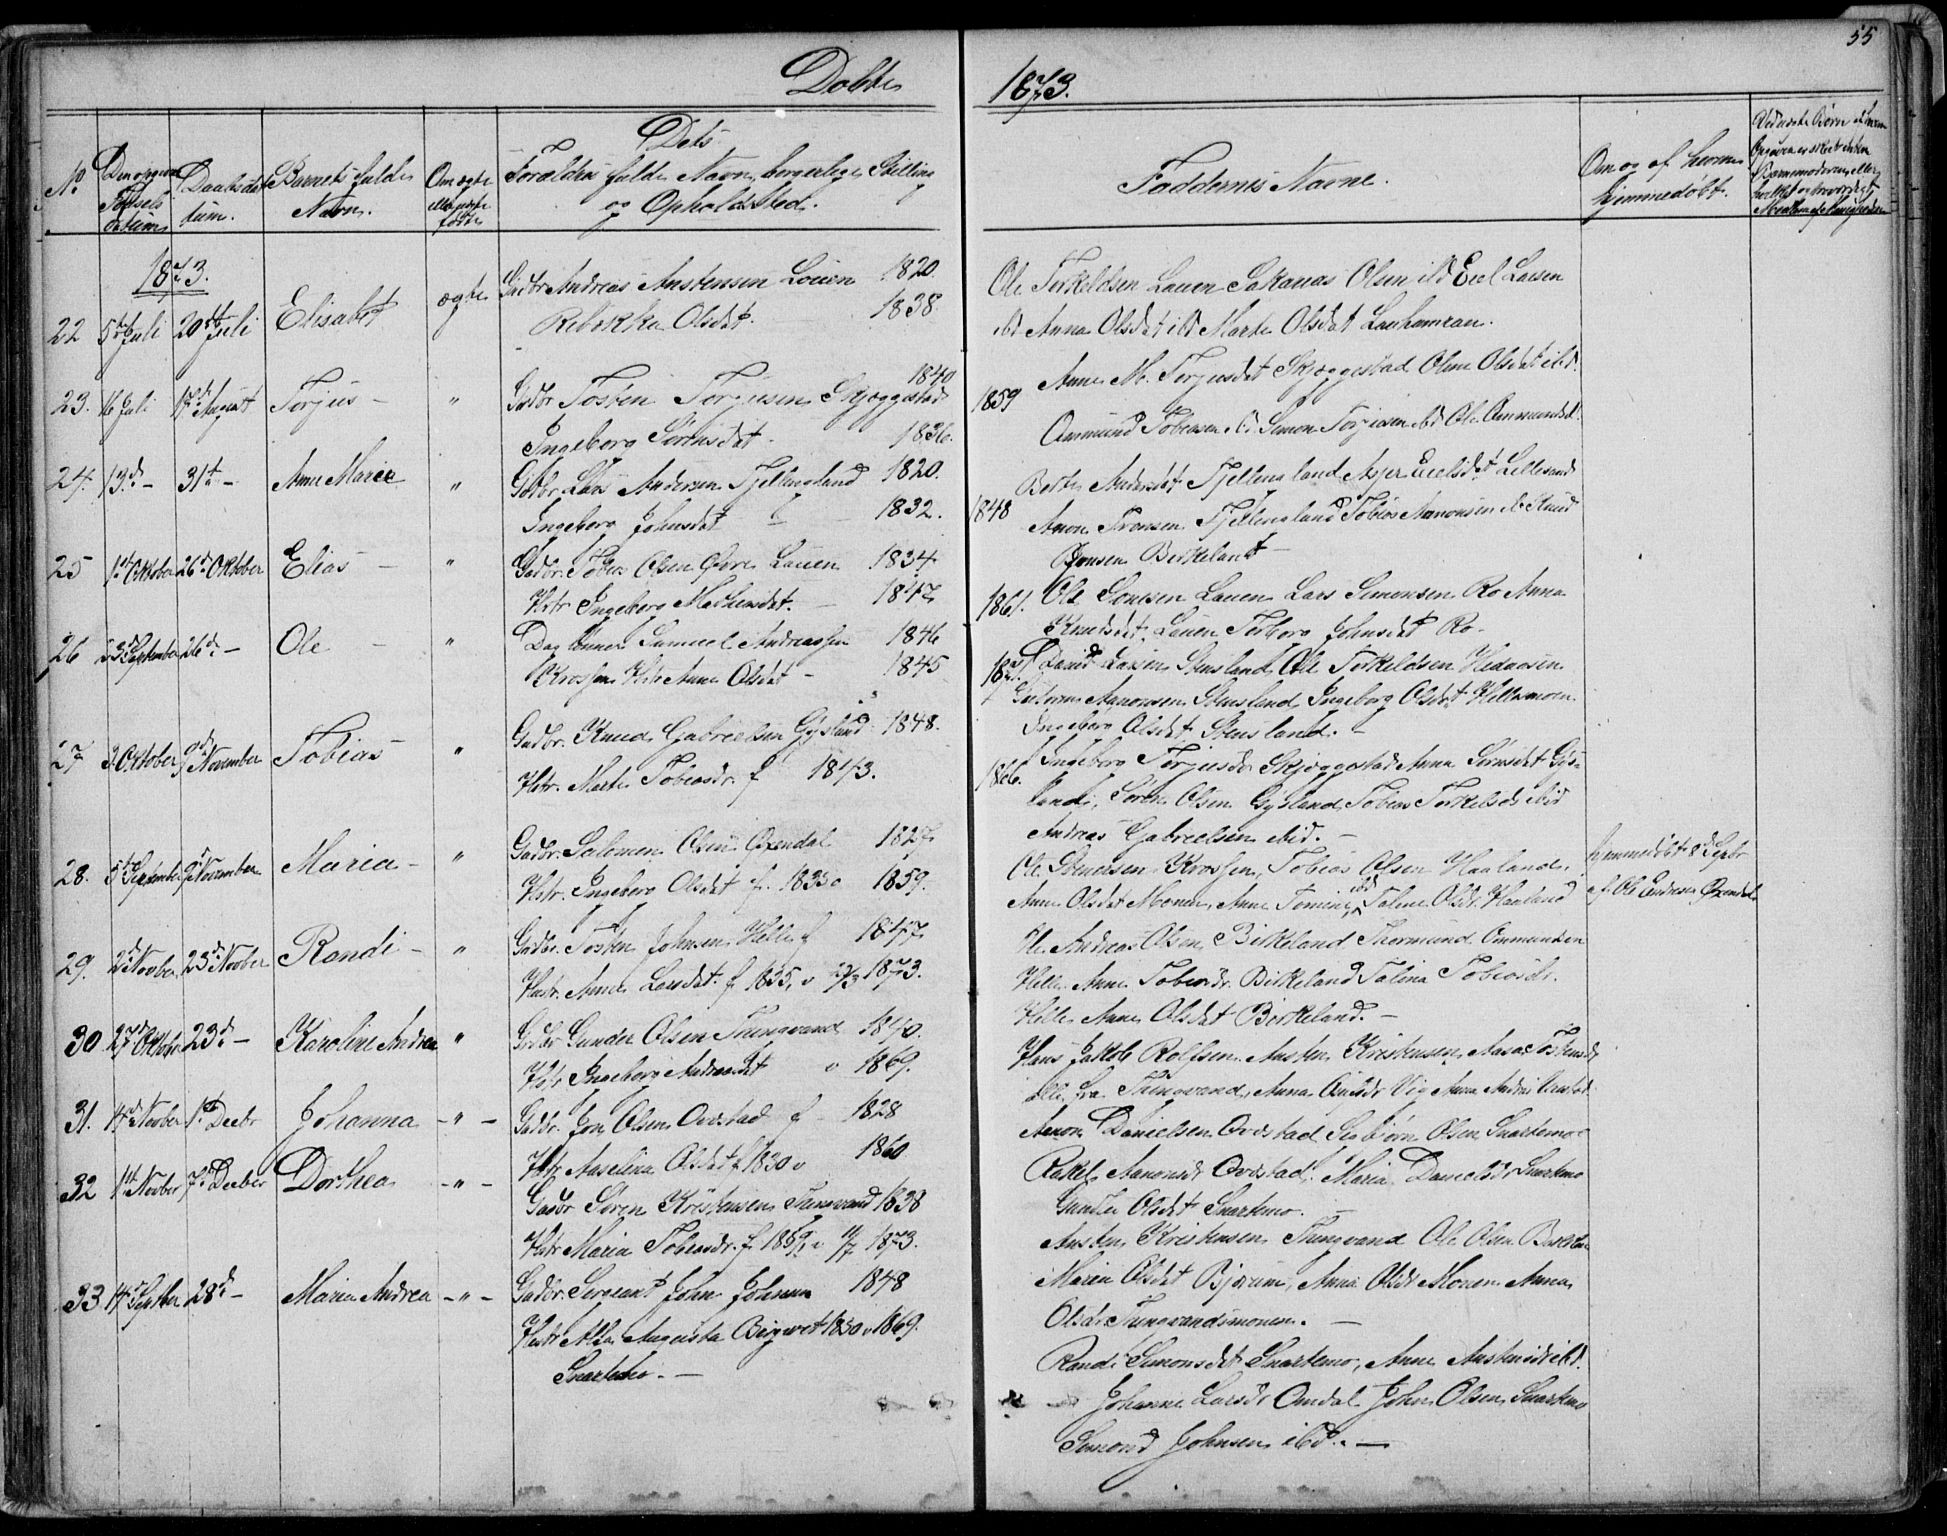 55
Døbte
1873.
No
Den opgivne Fødselsdatum
Daabsdatum.
Barnets fulde Navn.
Om ægte eller uægte født
Dets Forældres fulde Navn, borgerlige Stilling og Opholdssted.
Faddernes Navne.
Om og af hvem hjemmedøbt.
1873.
22 5te Juli 20de Juli Elisabet ægte Gadbr Andreas Austensen Lauen 1820
Rebekka Olsdat. 1838
Ole Torkeldsen Lauen Sakarias Olsen ibd Eiel Larsen
ibd Anna Olsdat ibd Marte Olsdat
23. 16 Juli 17de August Torjus - " Gadbr Tosten Torjusen Skjeggestad 1840
Ingeborg Sørensdat. 1836. 1859
Anne M. Torjusdat Skjæggestad Oline Olsdat ibd.
Ommund Tobiasen ibd Simon Torjusen ibd Ole Ommundsd.
24. 13d - 31te - Anne Marie " Gadbr. Lars Andersen Fjellingland 1820.
Ingeborg Johnsdat 1832. 1848
Berte Andersdat Fjellingland Asjer Eielsdat Lillesand
Anon Tronsen Fjellingland Tobias Aanonsen ib Knud
Jonsen Birkeland -
25 1st Oktober 26d Oktober Elias - " Gadbr. Tobias Olsen Øvre Lauen 1834.
Hstr Ingeborg Mathiasdat. - 1847 1861.
Ole Lauen Lars Simonsen Ro Anna
Knudsdat Lauen Torborg Johnsdat Ro -
26 23d September 26d - Ole - " Dagl. Samuel Andreassen 1846
Krossen Hstr Anne Olsdat - 1845 1871
David Larsen Stensland Ole Torkeldsen
Guttorm Aanonsen Stensland Ingeborg Olsdat Hellesmoen
Ingeborg Olsdat Stensland. -
27 3 Oktober 9d November Tobias " Gadbr. Knud Gabrielsen Gysland 1848.
Hstr. Marte Tobiasdr. f 1843. 1866.
Ingeborg Torjusdr Skjeggestad Anna Sørensdat Gys-
land, Søren Olsen Gysland Tobias Torkelsen ibid
Andreas Gabrielsen ibid. -
28. 5te September 9d November Maria - " Gadbr. Salomon Olsen Øxendal 1827
Hstr. Ingeborg Olsdat f. 1833 v 1859.
Ole Krossen, Tobias Olsen Haaland,
Anne Olsdat Moen, Anne Tomine ibd Taline Olsdr Haaland
hjemmedøbt 8d Septbr
af Ole Endresen Øxendal
29. 2d Novber 23d Novber Randi - " Gadbr. Tosten Johnsen Helle f 1847
Hustr. Anne Larsdat. f 1835, v 23/3 1873.
Andreas Olsen Birkeland Thormund Ommundsen
Helle Anne Tobiasdr. Birkeland Talina Tobiasdr.
Helle Anne Olsdat Birkeland. -
30 27d Oktbr 23d - Karoline Andrea " Gadbr Gunder Olsen Tungvand 1840.
Hstr Ingeborg Andreasdat v 1869.
Hans Jakob Rolfsen, Austen Kristensen, Aasa Tostensdr
alle fra Tungvand, Anna Vig Anna
31. 14d Novber 1ste Decbr Johanna - " - Gadbr. Jon Olsen Ovestad f 1828
Hstr Anselina Olsdat f 1830 v 1860
Aanon Danielsen Ovestad Seebjørn Olsen Snartemo
Rakel Aanonsdr Ovestad, Maria Danielsdr Snartemo
Gunder Olsdat Snartemo. -
32 1st Novber 7de Decber Dorthea - " - Gadbr Søren Kristensen Tungvand 1838
Hstr Maria Tobiasdr. f. 1851 v 11/7 1873.
Austen Kristensen Tungvand Ole Olsen
Maria Olsdat Bjørum, Anna Olsdr Moen Anna
Olsdr Tungvandsmonen. -
33 14d Septber 28d - Maria Andrea - " - Gadbr. Sergeant John Johnsen 1848
Hustr Alla Augusta 1850 v 1869.
Snartemo. -
Randi Simonsdat Snartemo, Anne Austensdr ibd.
Johanne Larsdr Omdal John Olsen Snartemo
Simond Johnsen ibd. -